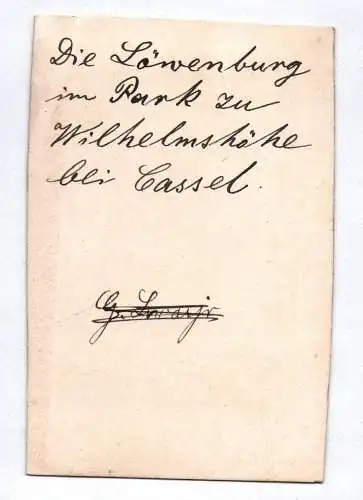 Die Löwenburg
im Park zu
Wilhelmshöhe
bei Cassel.